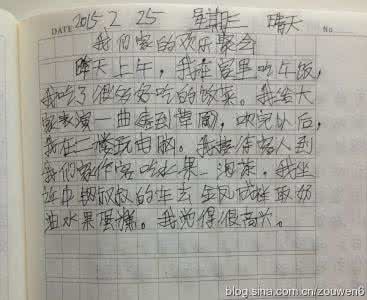 2015.2 25 星期三 晴天
DATE No
我们家的欢乐聚会
昨天上午,我在宫里吃午饭,
我吃了很多好吃的饭菜。我给大
家表演一曲《 》,吹完以后,
我在二楼玩电脑。我接待客人到
我们家作客吃水果、泡茶。我坐
叔叔的车去金凤成祥取奶
油水果蛋糕。我觉得很高兴。
blog.sina.com.cn/zouwen6